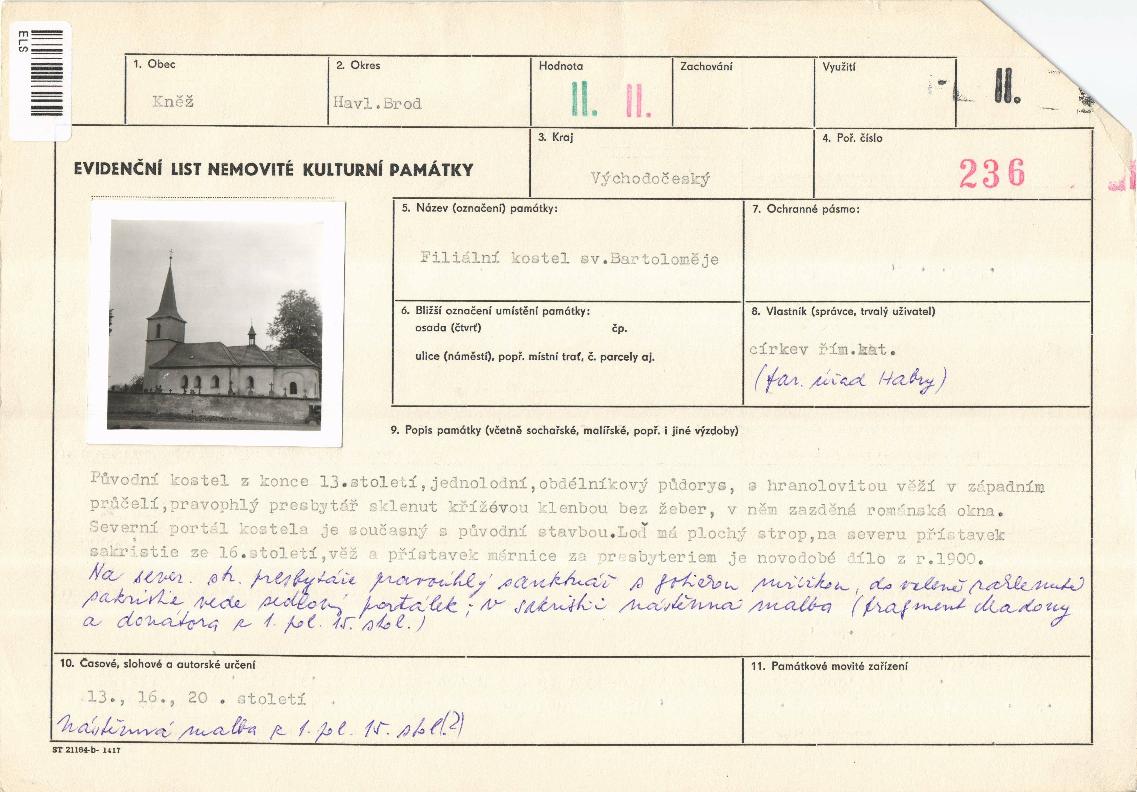 ELS
1. Obec
Kněž
2. Okres
Havl.Brod
Hodnota
II. II.
Zachování
Využití
II.
EVIDENČNÍ LIST NEMOVITÉ KULTURNÍ PAMÁTKY
3. Kraj
Východočeský
4. Poř. číslo
236
5. Název (označení) památky:
Filiální kostel sv.Bartoloměje
7. Ochranné pásmo:
6. Bližší označení umístění památky:
osada (čtvrť) čp.
ulice (náměstí), popř. místní trať, č. parcely aj.
8. Vlastník (správce, trvalý uživatel)
církev řím.kat.
(far. úřad Habry)
9. Popis památky (včetně sochařské, malířské, popř. i jiné výzdoby)
Původní kostel z konce 13.století,jednolodní,obdélníkový půdorys, s hranolovitou věží v západním
průčelí,pravophlý presbytář sklenut křížévou klenbou bez žeber, v něm zazděná románská okna.
Severní portál kostela je současný s původní stavbou.Loď má plochý strop,na severu přístavek
sakristie ze 16.století,věž a přístavek márnice za presbyteriem je novodobé dílo z r.1900.
Na sever. str. presbytáře pravoúhlý sanktuář s gotickou mřížkou, do valeně zaklenuté
sakristie vede sedlový portálek; v sakristii nástěnná malba (fragment Madony
a donátora z 1. pol. 15. stol.)
10. Časové, slohové a autorské určení
13., 16., 20 . století
nástěnná malba z 1. pol. 15. stol.(?)
11. Památkové movité zařízení
ST 21184-b- 1417